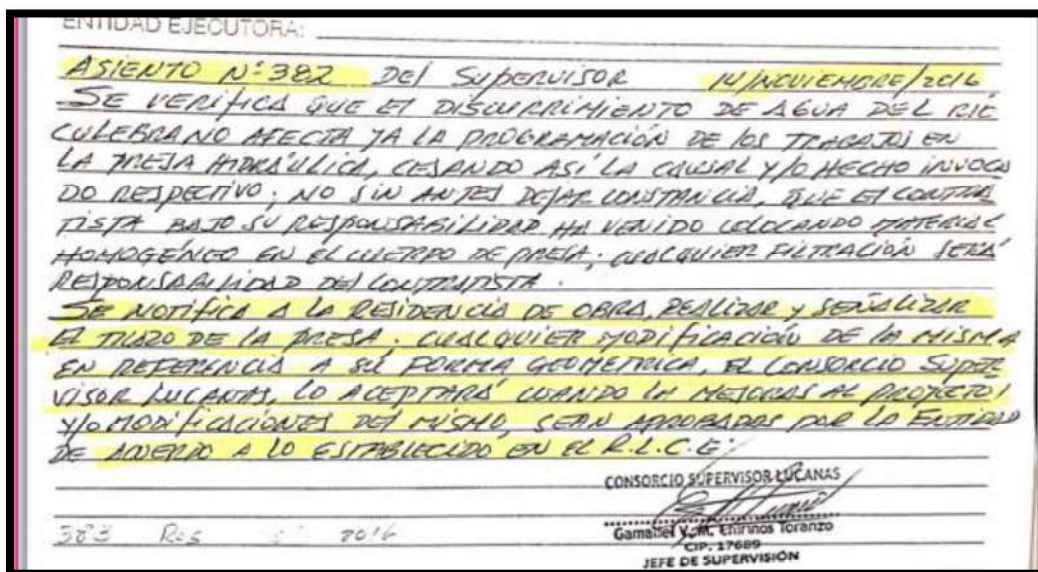 ENTIDAD EJECUTORA:
ASIENTO N:382 Del Supervisor 14/NOVIEMBRE/2016
SE VERIFICA QUE EL DISCURRIMIENTO DE AGUA DEL RIO
CULEBRA NO AFECTA YA LA PROGRAMACIÓN DE LOS TRABAJOS EN
LA PRESA HIDRÁULICA, CESANDO ASÍ LA CAUSAL Y/O HECHO INVOCA
DO RESPECTIVO; NO SIN ANTES DEJAR CONSTANCIA, QUE EL CONTRA
TISTA BAJO SU RESPONSABILIDAD HA VENIDO COLOCANDO MATERIAL
HOMOGÉNEO EN EL CUERPO DE PRESA; CUALQUIER FILTRACIÓN SERÁ
RESPONSABILIDAD DEL CONTRATISTA.
SE NOTIFICA A LA RESIDENCIA DE OBRA, REALIZAR Y SEÑALIZAR
EL TRAZO DE LA PRESA. CUALQUIER MODIFICACIÓN DE LA MISMA
EN REFERENCIA A SU FORMA GEOMÉTRICA, EL CONSORCIO SUPER
VISOR LUCANAS, LO ACEPTARÁ CUANDO LA MEJORAS AL PROYECTO
Y/O MODIFICACIONES DEL MISMO, SEAN APROBADAS POR LA ENTIDAD
DE ACUERDO A LO ESTABLECIDO EN EL R.L.C.E.
CONSORCIO SUPERVISOR LUCANAS
Gamaniel V. M. Chirinos Toranzo
CIP. 17689
JEFE DE SUPERVISIÓN
383 Res 2016